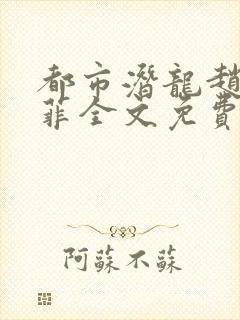 都市潛龍趙
菲全文免費
阿蘇不蘇